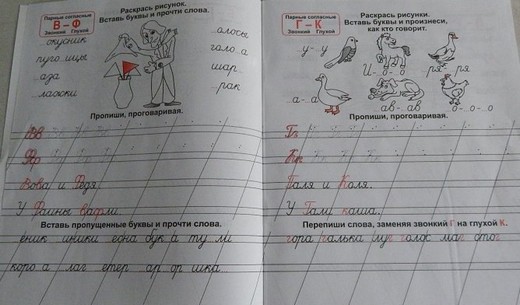 Парные согласные
В – Ф
Звонкий Глухой
Раскрась рисунок.
Вставь буквы и прочти слова.
...окусник
пуго...ицы
...аза
ла...ошки
...олосы
голо...а
шар...
...рак
Пропиши, проговаривая.
Вв
Фф
Вова и Федя.
У Фаины вафли.
Вставь пропущенные буквы и прочти слова.
еник иники една бук а ту ли
коро а лаг етер ар ор шка
Парные согласные
Г – К
Звонкий Глухой
Раскрась рисунки.
Вставь буквы и произнеси,
как кто говорит.
...у – ...у
И – ...о – ...о
...ря ...ря
...а – ...а
ав – ав
...о – ...о – ...о
Пропиши, проговаривая.
Гг
Кк
Галя и Коля.
У Гали каша.
Перепиши слова, заменяя звонкий Г на глухой К.
гора галька луг голос маг стог